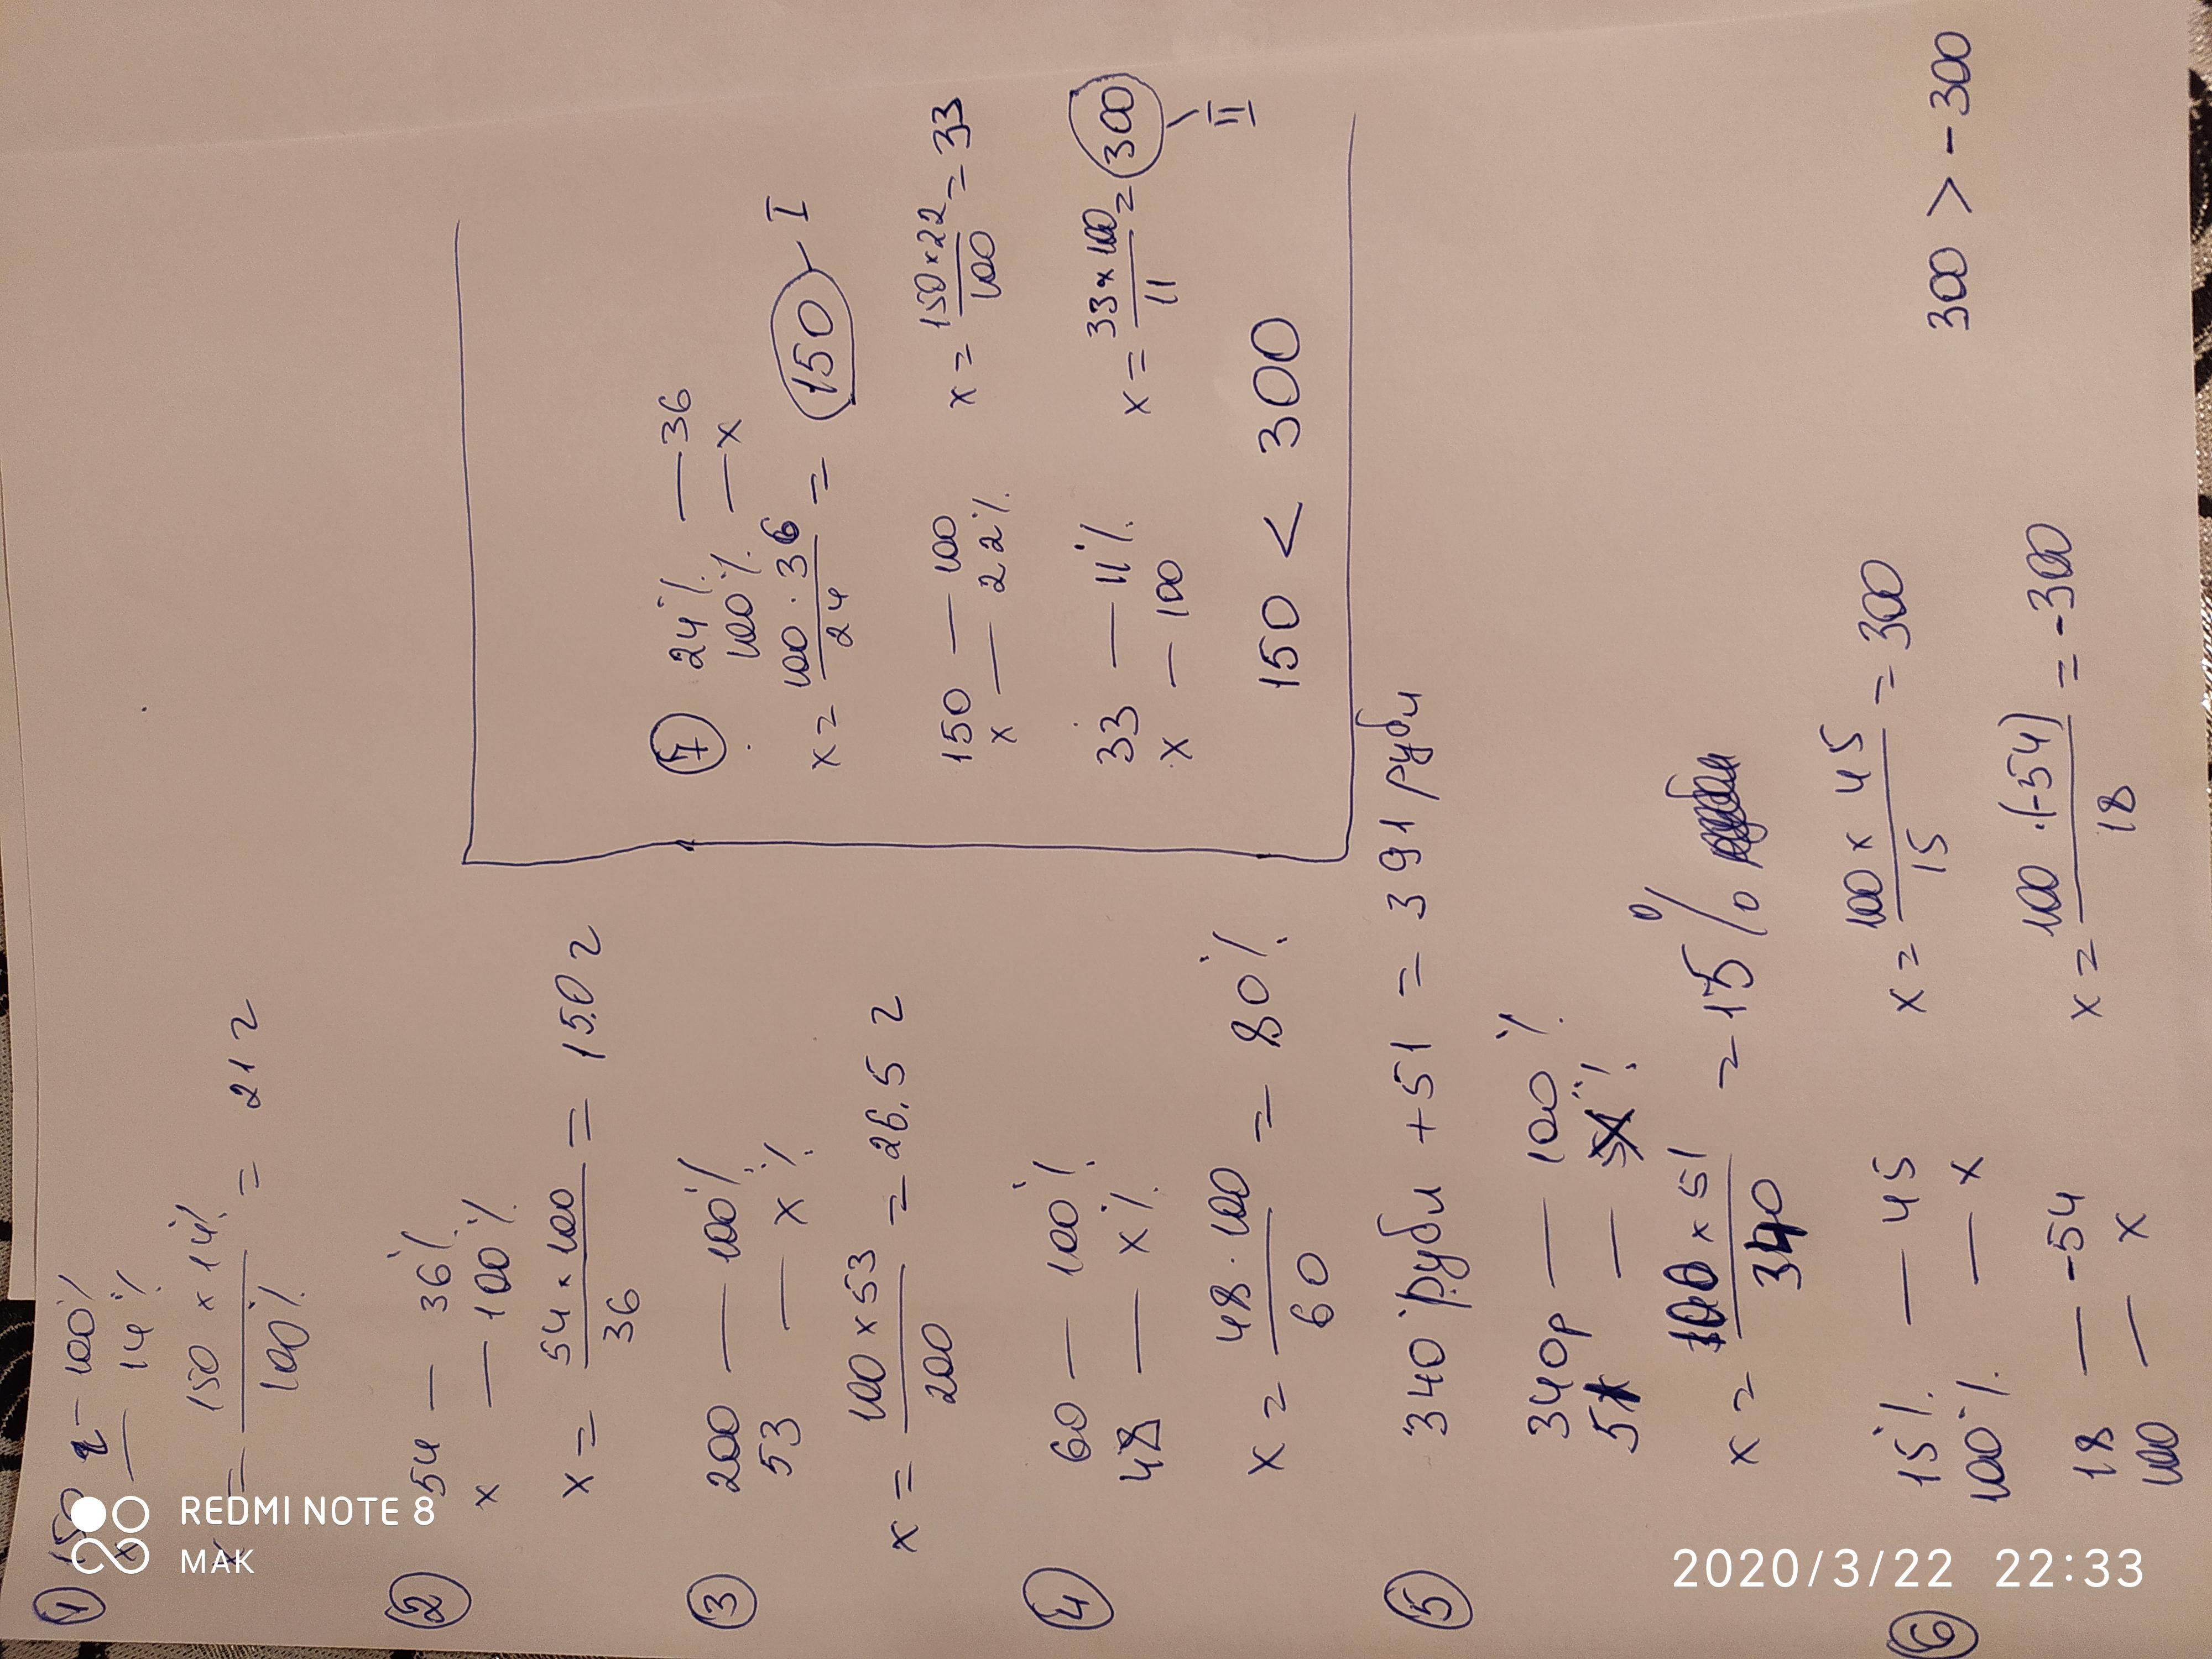 ① 150 г — 100%
x — 14%
x = 150 × 14% / 100% = 21 г
② 54 — 36%
x — 100%
x = 54 × 100 / 36 = 150 г
③ 200 — 100%
53 — x%
x = 100 × 53 / 200 = 26.5 г
④ 60 — 100%
48 — x%
x = 48 · 100 / 60 = 80%
⑤ 340 рубл + 51 = 391 рубл
340р — 100%
51 — x%
x = 100 × 51 / 340 = 15%
⑥ 15% — 45
100% — x
x = 100 × 45 / 15 = 300
18 — -54
100 — x
x = 100 · (-54) / 18 = -300
300 > -300
⑦ 24% — 36
100% — x
x = 100 · 36 / 24 = 150 I
150 — 100
x — 22%
x = 150 × 22 / 100 = 33
33 — 11%
x — 100
x = 33 × 100 / 11 = 300 II
150 < 300
REDMI NOTE 8
MAK
2020/3/22 22:33